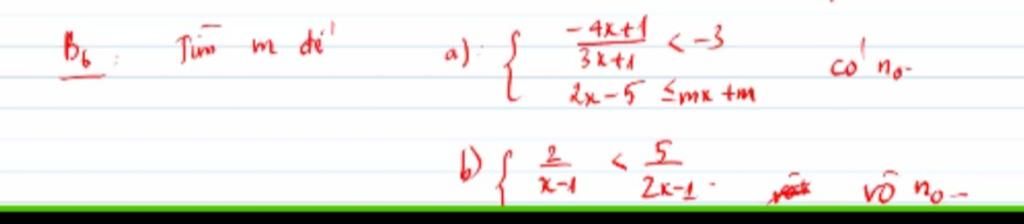 B6: Tìm m để a): { (-4x+1)/(3x+1) < -3
2x-5 ≤ mx+m có n0-
b) { 2/(x-1) < 5/(2x-1). vô n0-